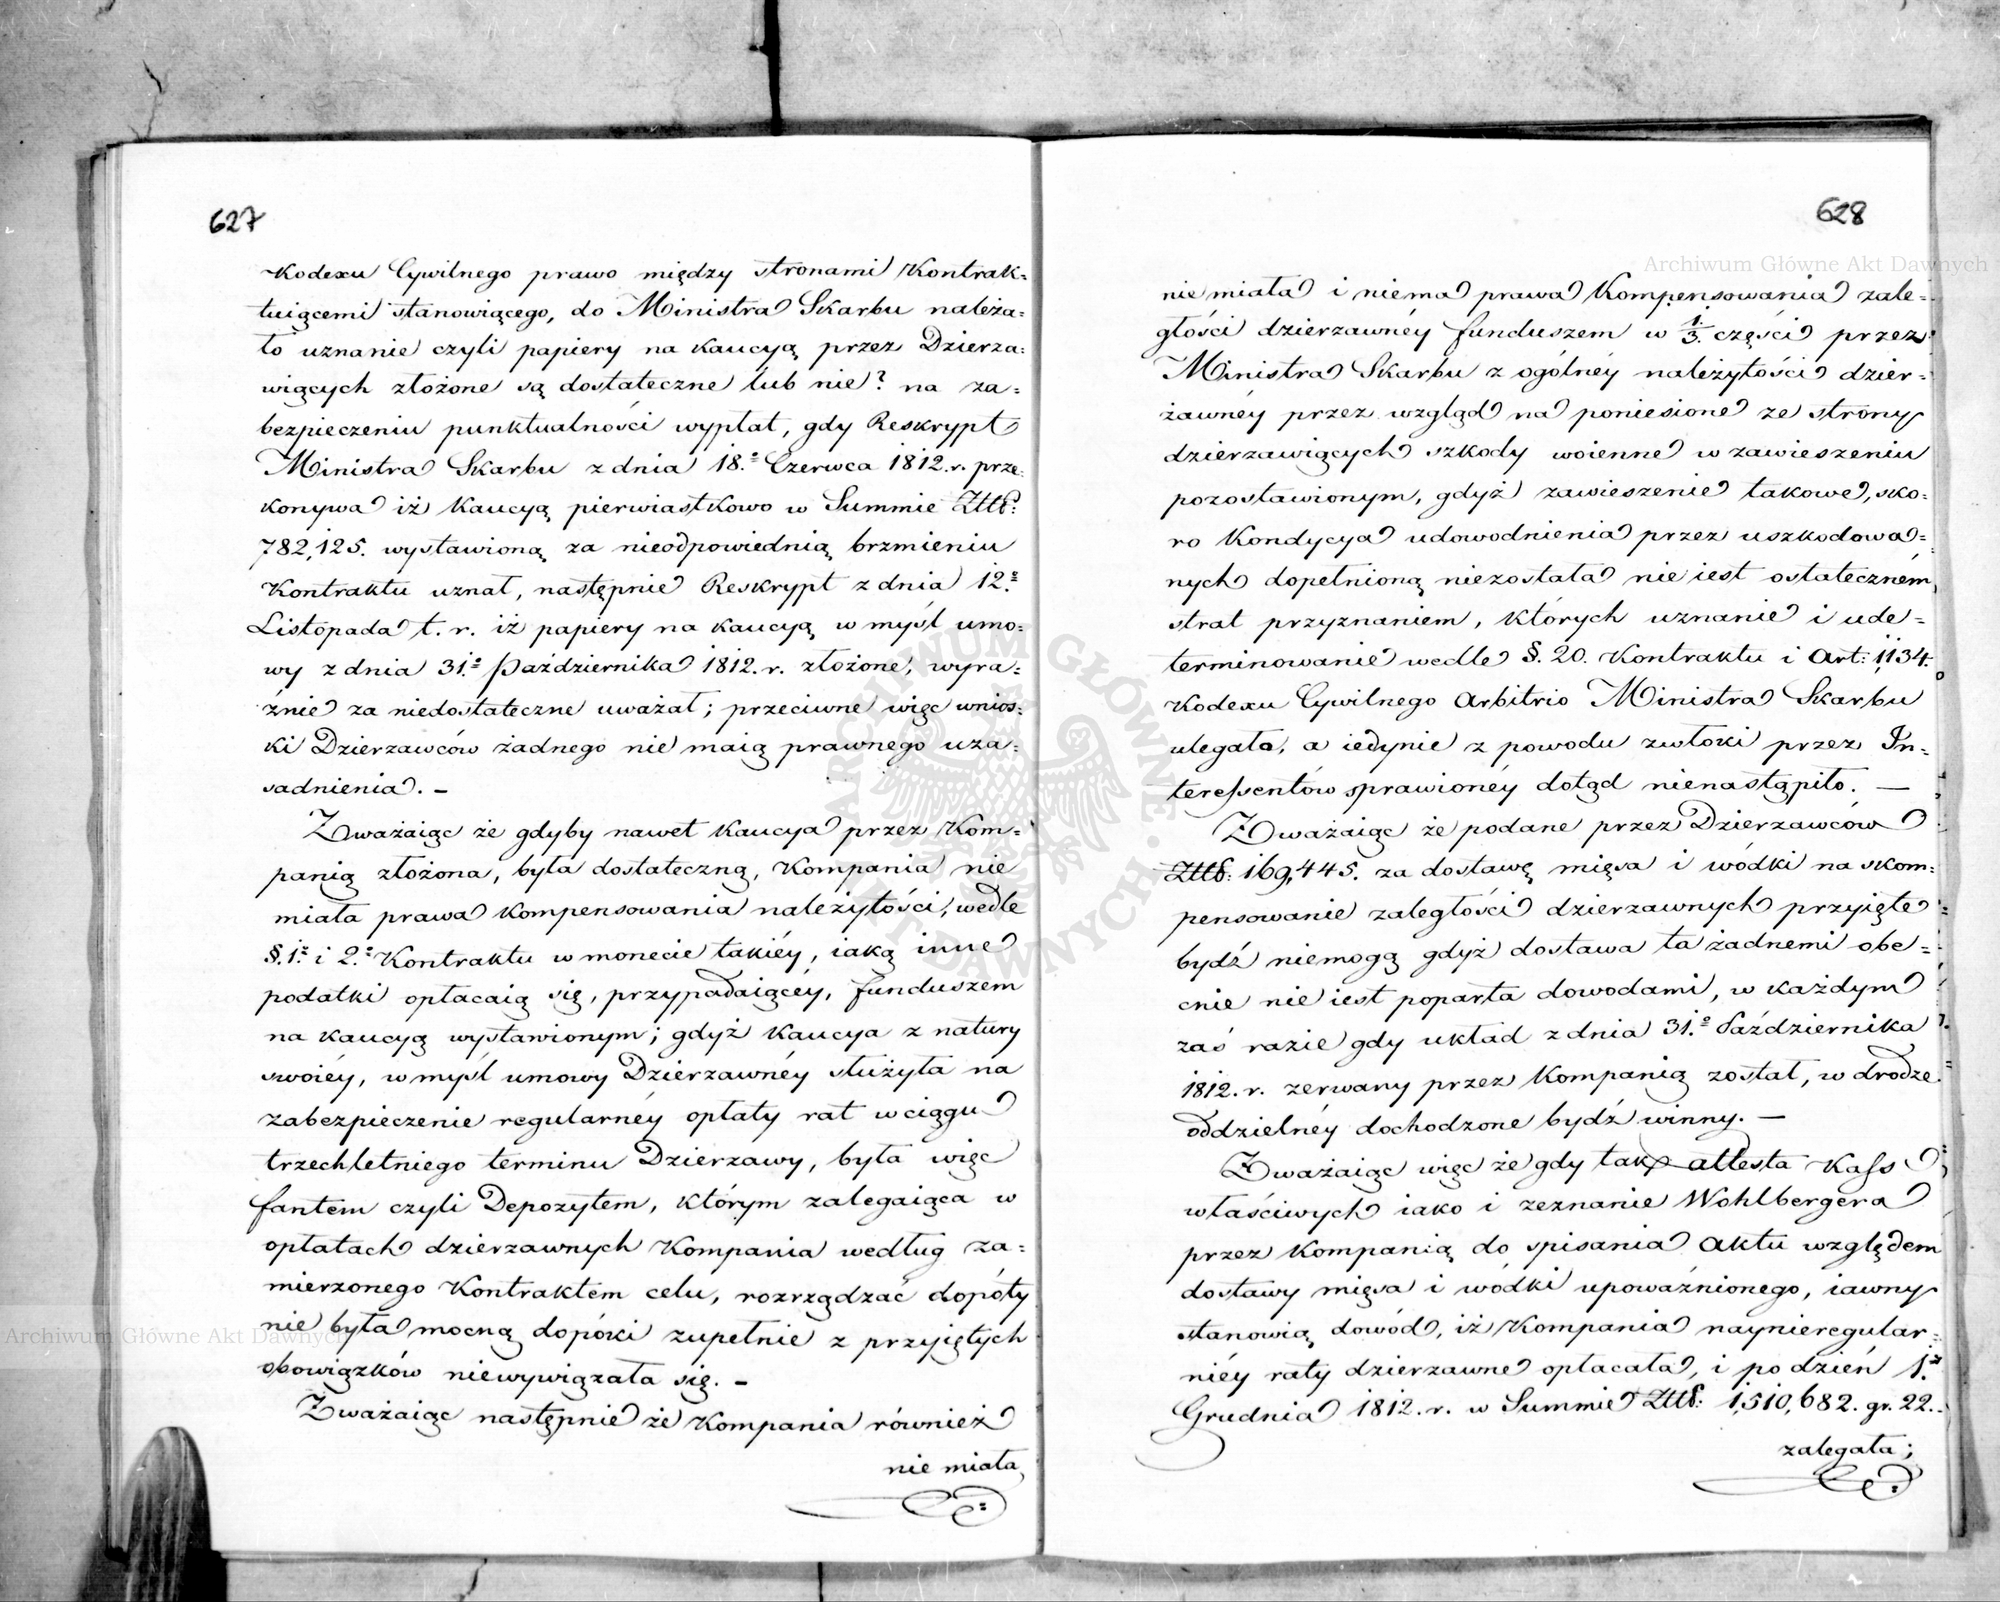 627
Kodexu Cywilnego prawo między stronami Kontrak=
tuiącemi stanowiącego, do Ministra Skarbu należa=
ło uznanie czyli papiery na kaucyą przez Dzierza=
wiących złożone są dostateczne lub nie? na za=
bezpieczeniu punktualności wypłat, gdy Reskrypt
Ministra Skarbu z dnia 18.º Czerwca 1812. r. prze=
konywa iż Kaucyą pierwiastkowo w Summie Złtt:
782,125. wystawioną za nieodpowiednią brzmieniu
Kontraktu uznał, następnie Reskrypt z dnia 12.º
Listopada t. r. iż papiery na kaucyą w myśl umo=
wy z dnia 31.º Października 1812. r. złożone, wyra=
źnie za niedostateczne uważał; przeciwne więc wnios=
ki Dzierzawców żadnego nie maią prawnego uza=
sadnienia. –
Zważaiąc że gdyby nawet Kaucya przez Kom=
panią złożona, była dostateczną, Kompania nie
miała prawa kompensowania należytości, wedle
§. 1.º i 2.º Kontraktu w monecie takiéy, iaką inne
podatki opłacaią się, przypadaiącéy, funduszem
na kaucyą wystawionym; gdyż Kaucya z natury
swoiéy, w myśl umowy Dzierzawnéy służyła na
zabezpieczenie regularnéy opłaty rat w ciągu
trzechletniego terminu Dzierzawy, była więc
fantem czyli Depozytem, którym zalegaiąca w
opłatach dzierzawnych Kompania według za=
mierzonego Kontraktem celu, rozrządzać dopóty
nie była mocną dopóki zupełnie z przyiętych
obowiązków niewywiązała się. –
Zważaiąc następnie że Kompania również
nie miała
628
nie miała i niema prawa Kompensowania zale=
głości dzierzawnéy funduszem w 1/3. części przez
Ministra Skarbu z ogólnéy należytości dzier=
żawnéy przez wzgląd na poniesione ze strony
dzierzawiących szkody woienne w zawieszeniu
pozostawionym, gdyż zawieszenie takowe, sko=
ro Kondycya udowodnienia przez uszkodowa=
nych dopełnioną niezostała nie iest ostateczném
strat przyznaniem, których uznanie i ude=
terminowanie wedle §. 20. Kontraktu i Art: 1,134.
Kodexu Cywilnego Arbitrio Ministra Skarbu
ulegało, a iedynie z powodu zwłoki przez In=
teressentów sprawionéy dotąd nienastąpiło. —
Zważaiąc że podane przez Dzierzawców
Złtt: 169,445. za dostawę mięsa i wódki na skom=
pensowanie zaległości dzierzawnych przyięte
bydź niemogą gdyż dostawa ta żadnemi obe=
cnie nie iest poparta dowodami, w każdym
zaś razie gdy układ z dnia 31.º Października
1812. r. zerwany przez Kompanią został, w drodze
oddzielnéy dochodzone bydź winny. —
Zważaiąc więc że gdy tak attesta Kass
właściwych iako i zeznanie Wohlbergera
przez Kompanią do spisania Aktu względem
dostawy mięsa i wódki upoważnionego, iawny
stanowią dowód, iż Kompania naynieregular=
niéy raty dzierzawne opłacała, i po dzień 1.º
Grudnia 1812. r. w Summie Złtt: 1,510,682. gr. 22.
zalegała;
Archiwum Główne Akt Dawnych
Archiwum Główne Akt Dawnych
ARCHIWUM GŁÓWNE AKT DAWNYCH